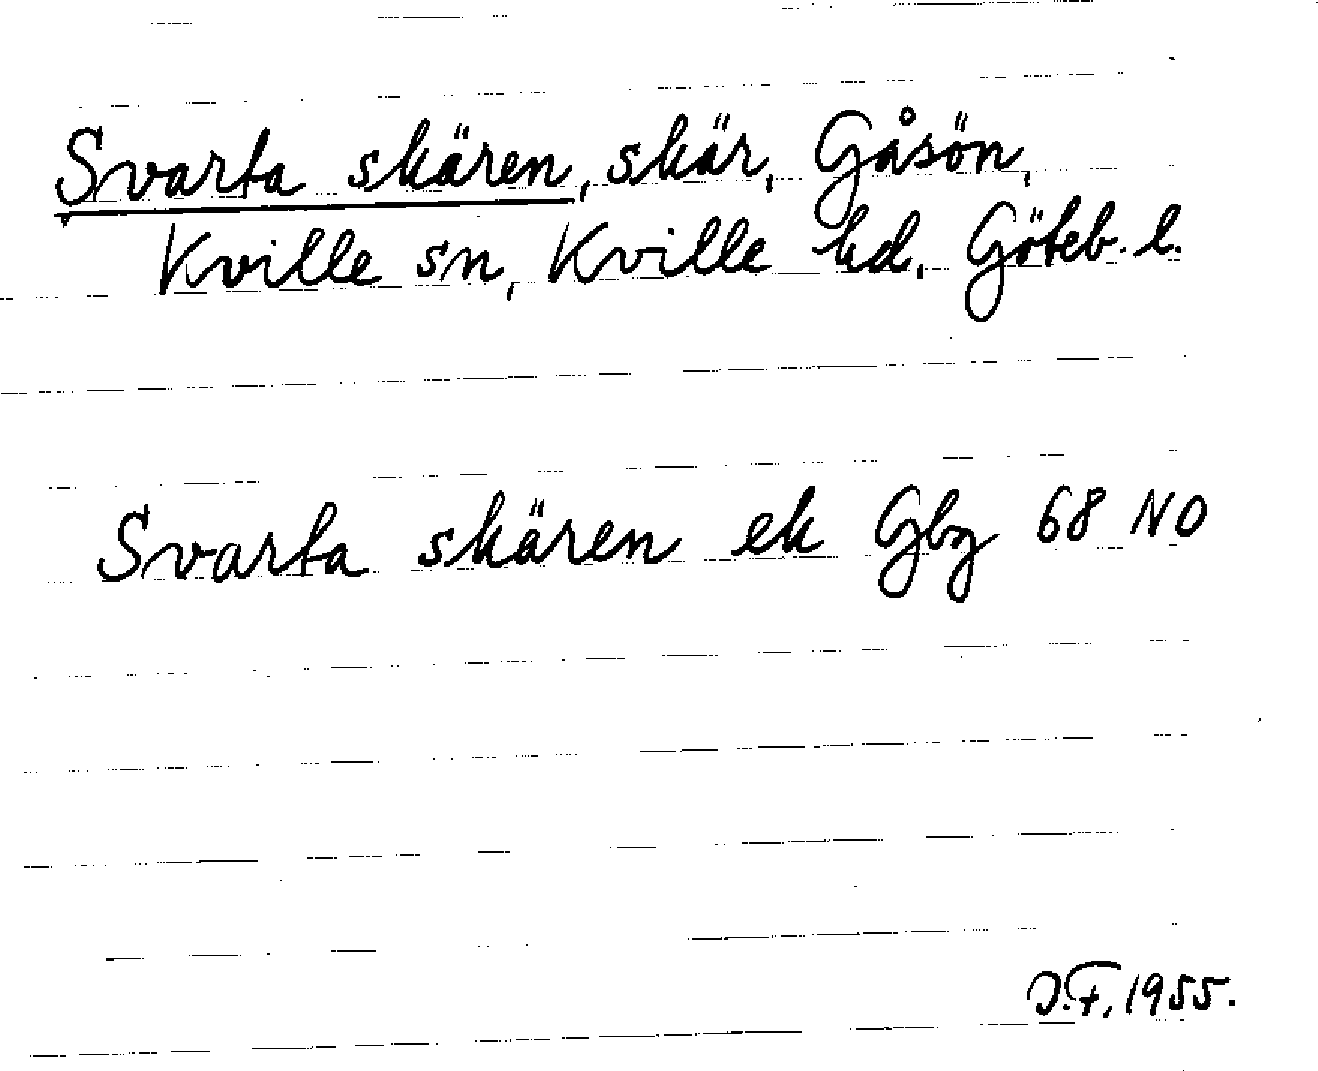 Svarta skären, skär, Gåsön,
Kville sn, Kville hd, Göteb. l.
Svarta skären ek Gbg 68 NO
J.F, 1955.